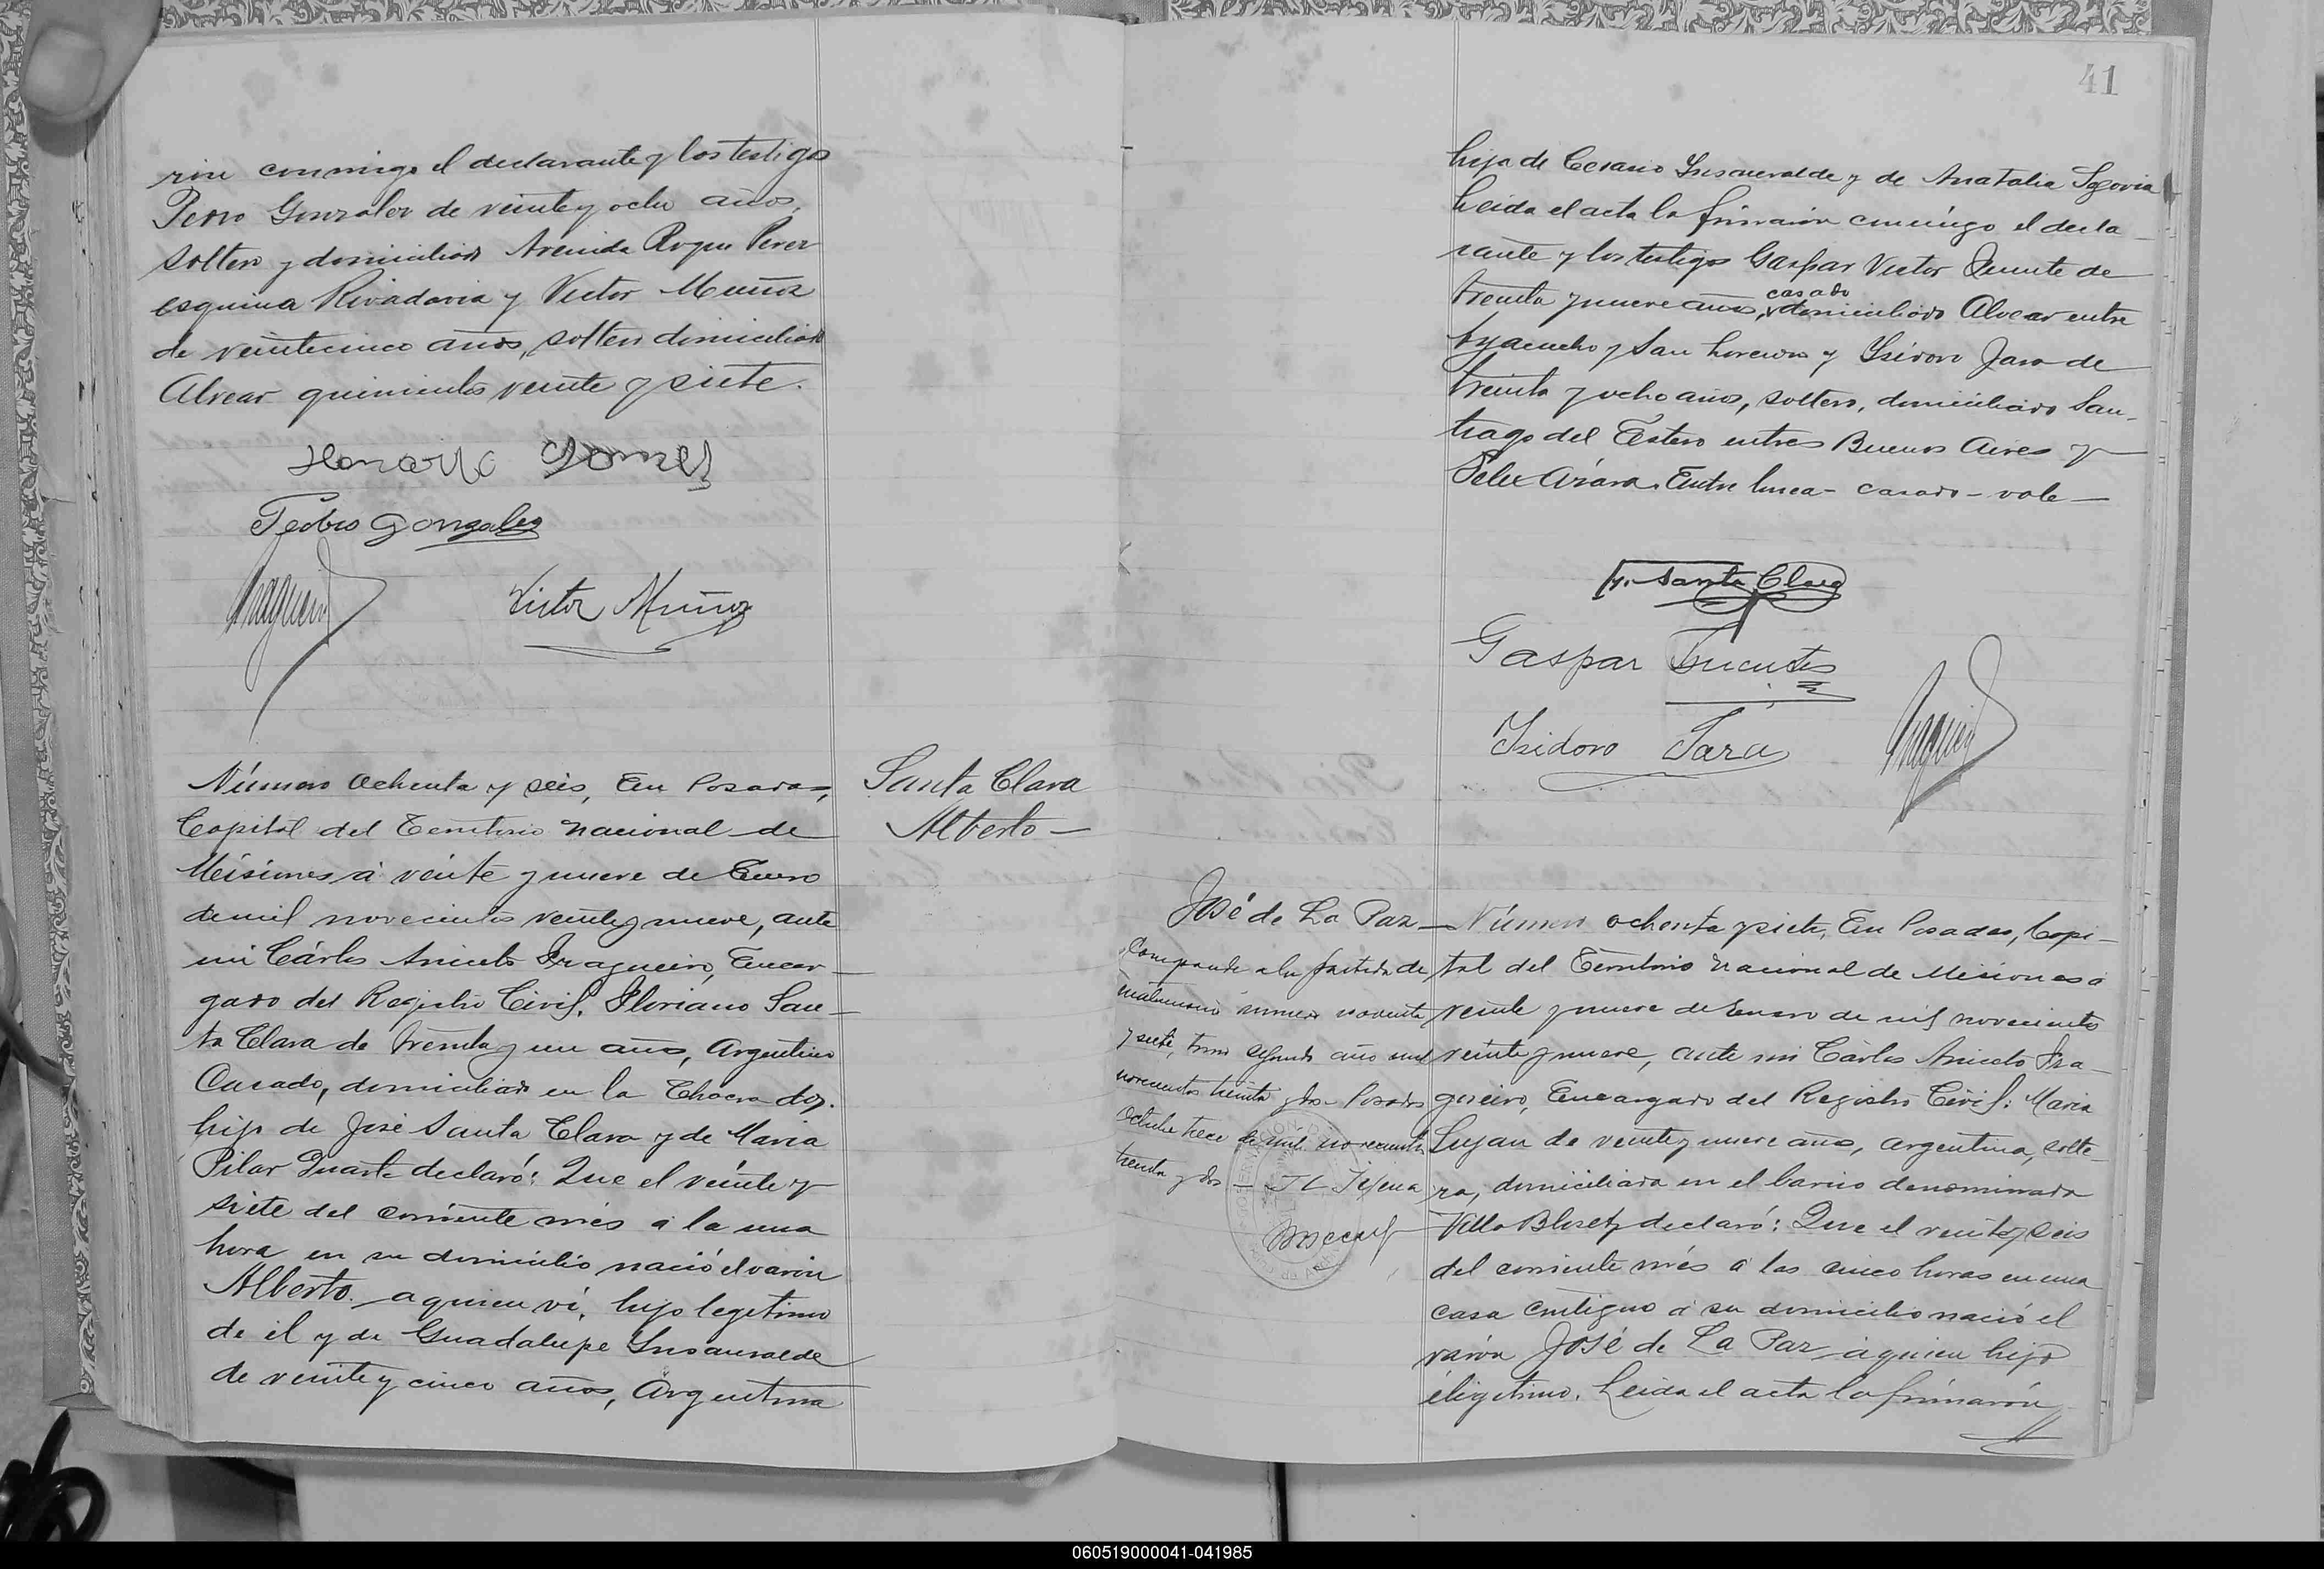 ron conmigo el declarante y los testigos
Pedro Gonzalez de veinte y ocho años,
soltero y domiciliado Avenida Roque Perez
esquina Rivadavia y Victor Muñoz
de veintecinco años, soltero domiciliado
Alvear quinientos veinte y siete.
Pedro Gonzalez
Victor Muñoz
Número ochenta y seis, En Posadas,
Capital del Territorio Nacional de
Misiones á veinte y nueve de Enero
de mil novecientos veinte y nueve, ante
mi Cárlos Aniceto Fragueiro, Encar-
gado del Registro Civil: Floriano San-
ta Clara de treinta y un años, Argentino
Casado, domiciliado en la Chacra dos.
hijo de José Santa Clara y de Maria
Pilar Duarte declaró: Que el veinte y
siete del corriente més á la una
hora en su domicilio nació el varón
Alberto a quien ví, hijo legítimo
de él y de Guadalupe Insaurralde
de veinte y cinco años, Argentina
Santa Clara
Alberto
41
hija de Cesario Insaurralde y de Anatalia Segovia
Leida el acta la firmaron conmigo el decla-
rante y los testigos Gaspar Victor Fuente de
casado
treinta y nueve años, domiciliado Alvear entre
Ayacucho y San Lorenzo y Isidoro Jara de
treinta y ocho años, soltero, domiciliado San-
tiago del Estero entre Buenos Aires y
Felix Azara. Entre linea - casado - vale
Santa Clara
Gaspar Fuentes
Isidoro Jara
José de La Paz
Corresponde a la partida de
matrimonio número noventa
y siete, tomo segundo año mil
novecientos treinta y dos - Posadas
Octubre trece de mil novecientos
treinta y dos
Número ochenta y siete, En Posadas, Capi-
tal del Territorio Nacional de Misiones á
veinte y nueve de Enero de mil novecientos
veinte y nueve, ante mi Cárlos Aniceto Fra-
gueiro, Encargado del Registro Civil: Maria
Lujan de veinte y nueve años, argentina, solte-
ra, domiciliada en el barrio denominado
Villa Blosset declaró: Que el veinte y seis
del corriente més á las cinco horas en una
casa contiguo á su domicilio nació el
varón José de La Paz á quien hijo
ilegítimo. Leida el acta la firmarón
060519000041-041985